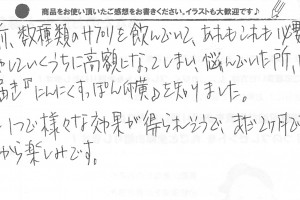 商品をお使い頂いたご感想をお書きください。イラストも大歓迎です♪
所、数種類のサプリを飲んでいて、あれもこれも必要
いくうちに高額になってしまい悩んでいた所、
『にんにくすっぽん黄』を知りました。
1つで様々な効果が得られそうで、まだ2ヶ月で
から楽しみです。